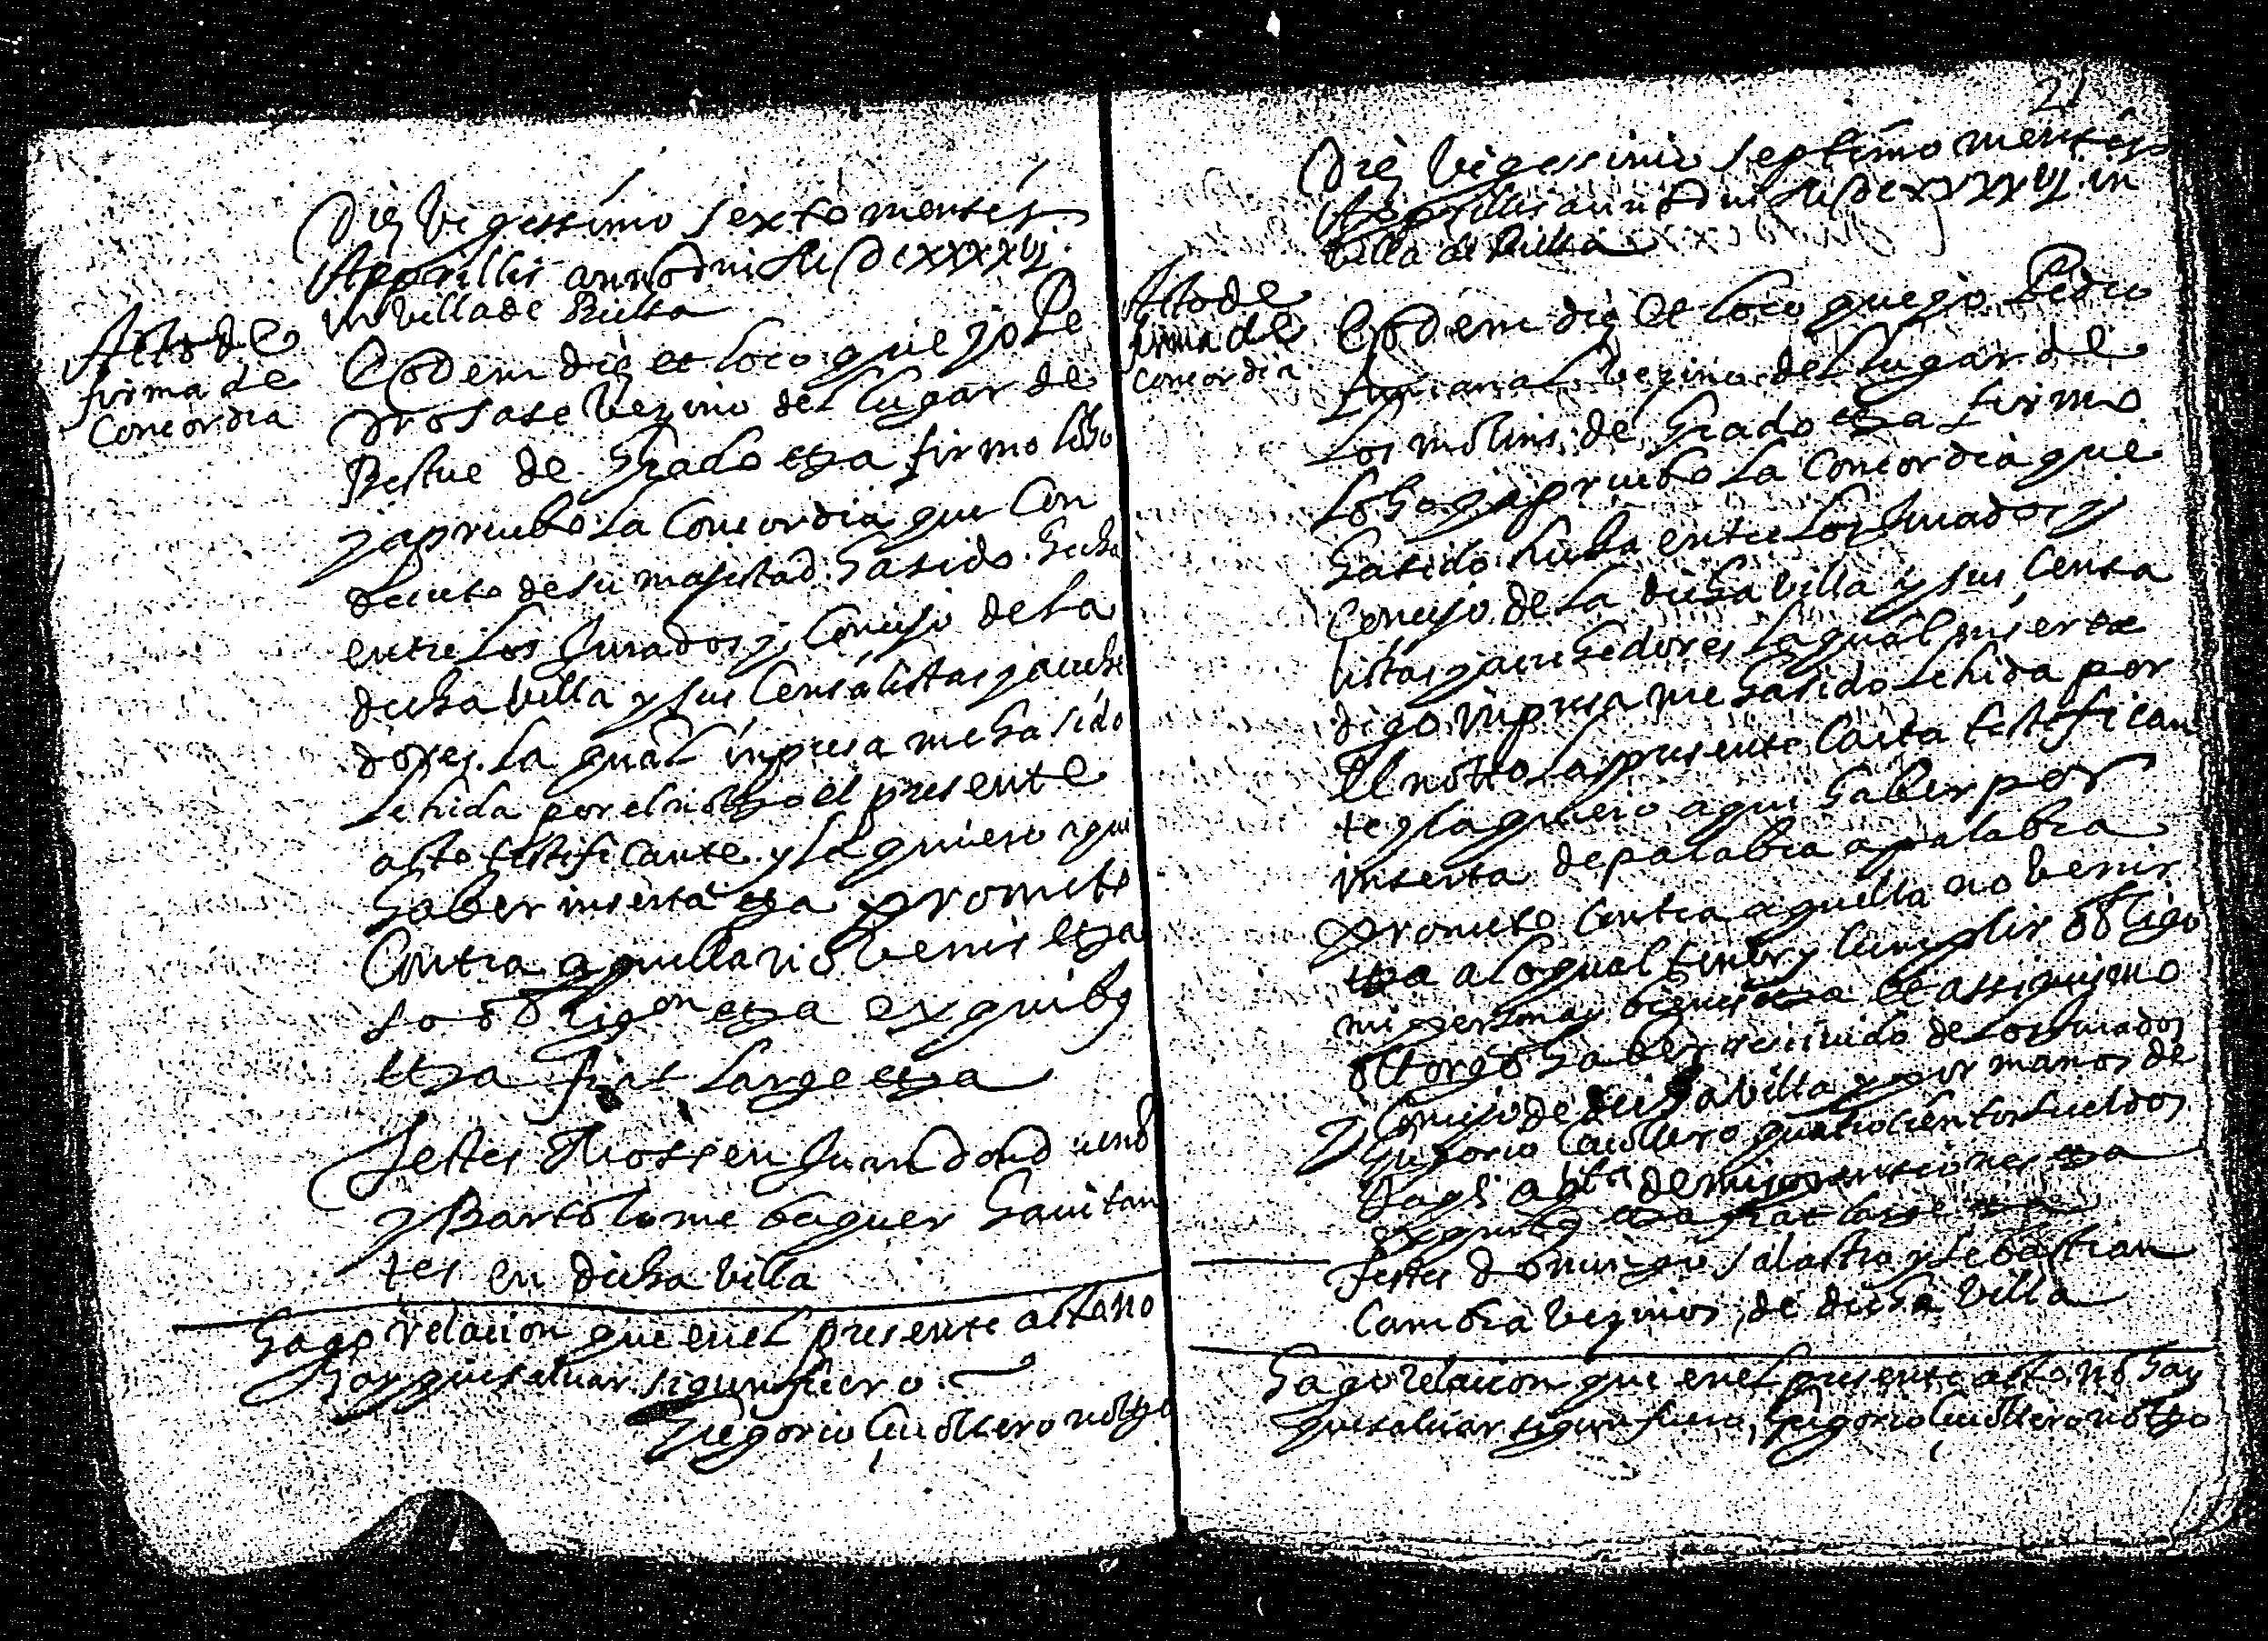 Die Vigessimo sexto mensis
Apprillis anno dni MDCXXXXVJ
in villa de
Acto de
firma de
Concordia
Eodem die et loco que yo Pe
dro sase Vezino del lugar de
Bestue de Grado etza firmo loho
y apruebo la Concordia que Con
decreto de su magestad ha sido hecha
entre los Jurados y Concejo de la
dicha villa y sus Censalistas y acrehe
dores la qual inpresa me ha sido
lehida por el notro el presente
acto testificante y la quiero aqui
haber inserta etza prometo
Contra aquella no benir etza
so obligon etza ex quibs
etza fiat large etza
Testes Mossen Juan
y Bartolome baquer hauitan
tes en dicha villa
hago relacion que en el presente acto no
hay que saluar segun fuero
Gregorio notro
21
Die Vigessimo septimo mensis
Apprillis anno dni MDCXXXXVJ in
villa de
Acto de
firma de
Concordia
Eodem die et loco que yo Pedro
Vezino del lugar de
Los molins de Grado etza firmo
Loho y apruebo la Concordia que
ha sido hecha entre los Jurados y
Concejo de la dicha villa y sus Censa
listas y acrehedores la qual inserta
digo inpresa me ha sido lehida por
El notro la presente Carta testifican
te y la quiero aqui haber por
inserta de palabra a palabra
prometo Contra aquella no benir
etza a lo qual tener y cumplir obligo
mi persona y bienes etza et assi mismo
ottorgo haber recivido de los Jurados
y Concejo de dicha villa y por manos de
Gregorio quatrocientos sueldos
Jaqs de mis pensiones etza
ex quibs etza fiat large etza
Testes domingo salastra y sebastian
Cambra Vezinos de dicha villa
hago relacion que en el presente acto no hay
que saluar segun fuero, Gregorio notro